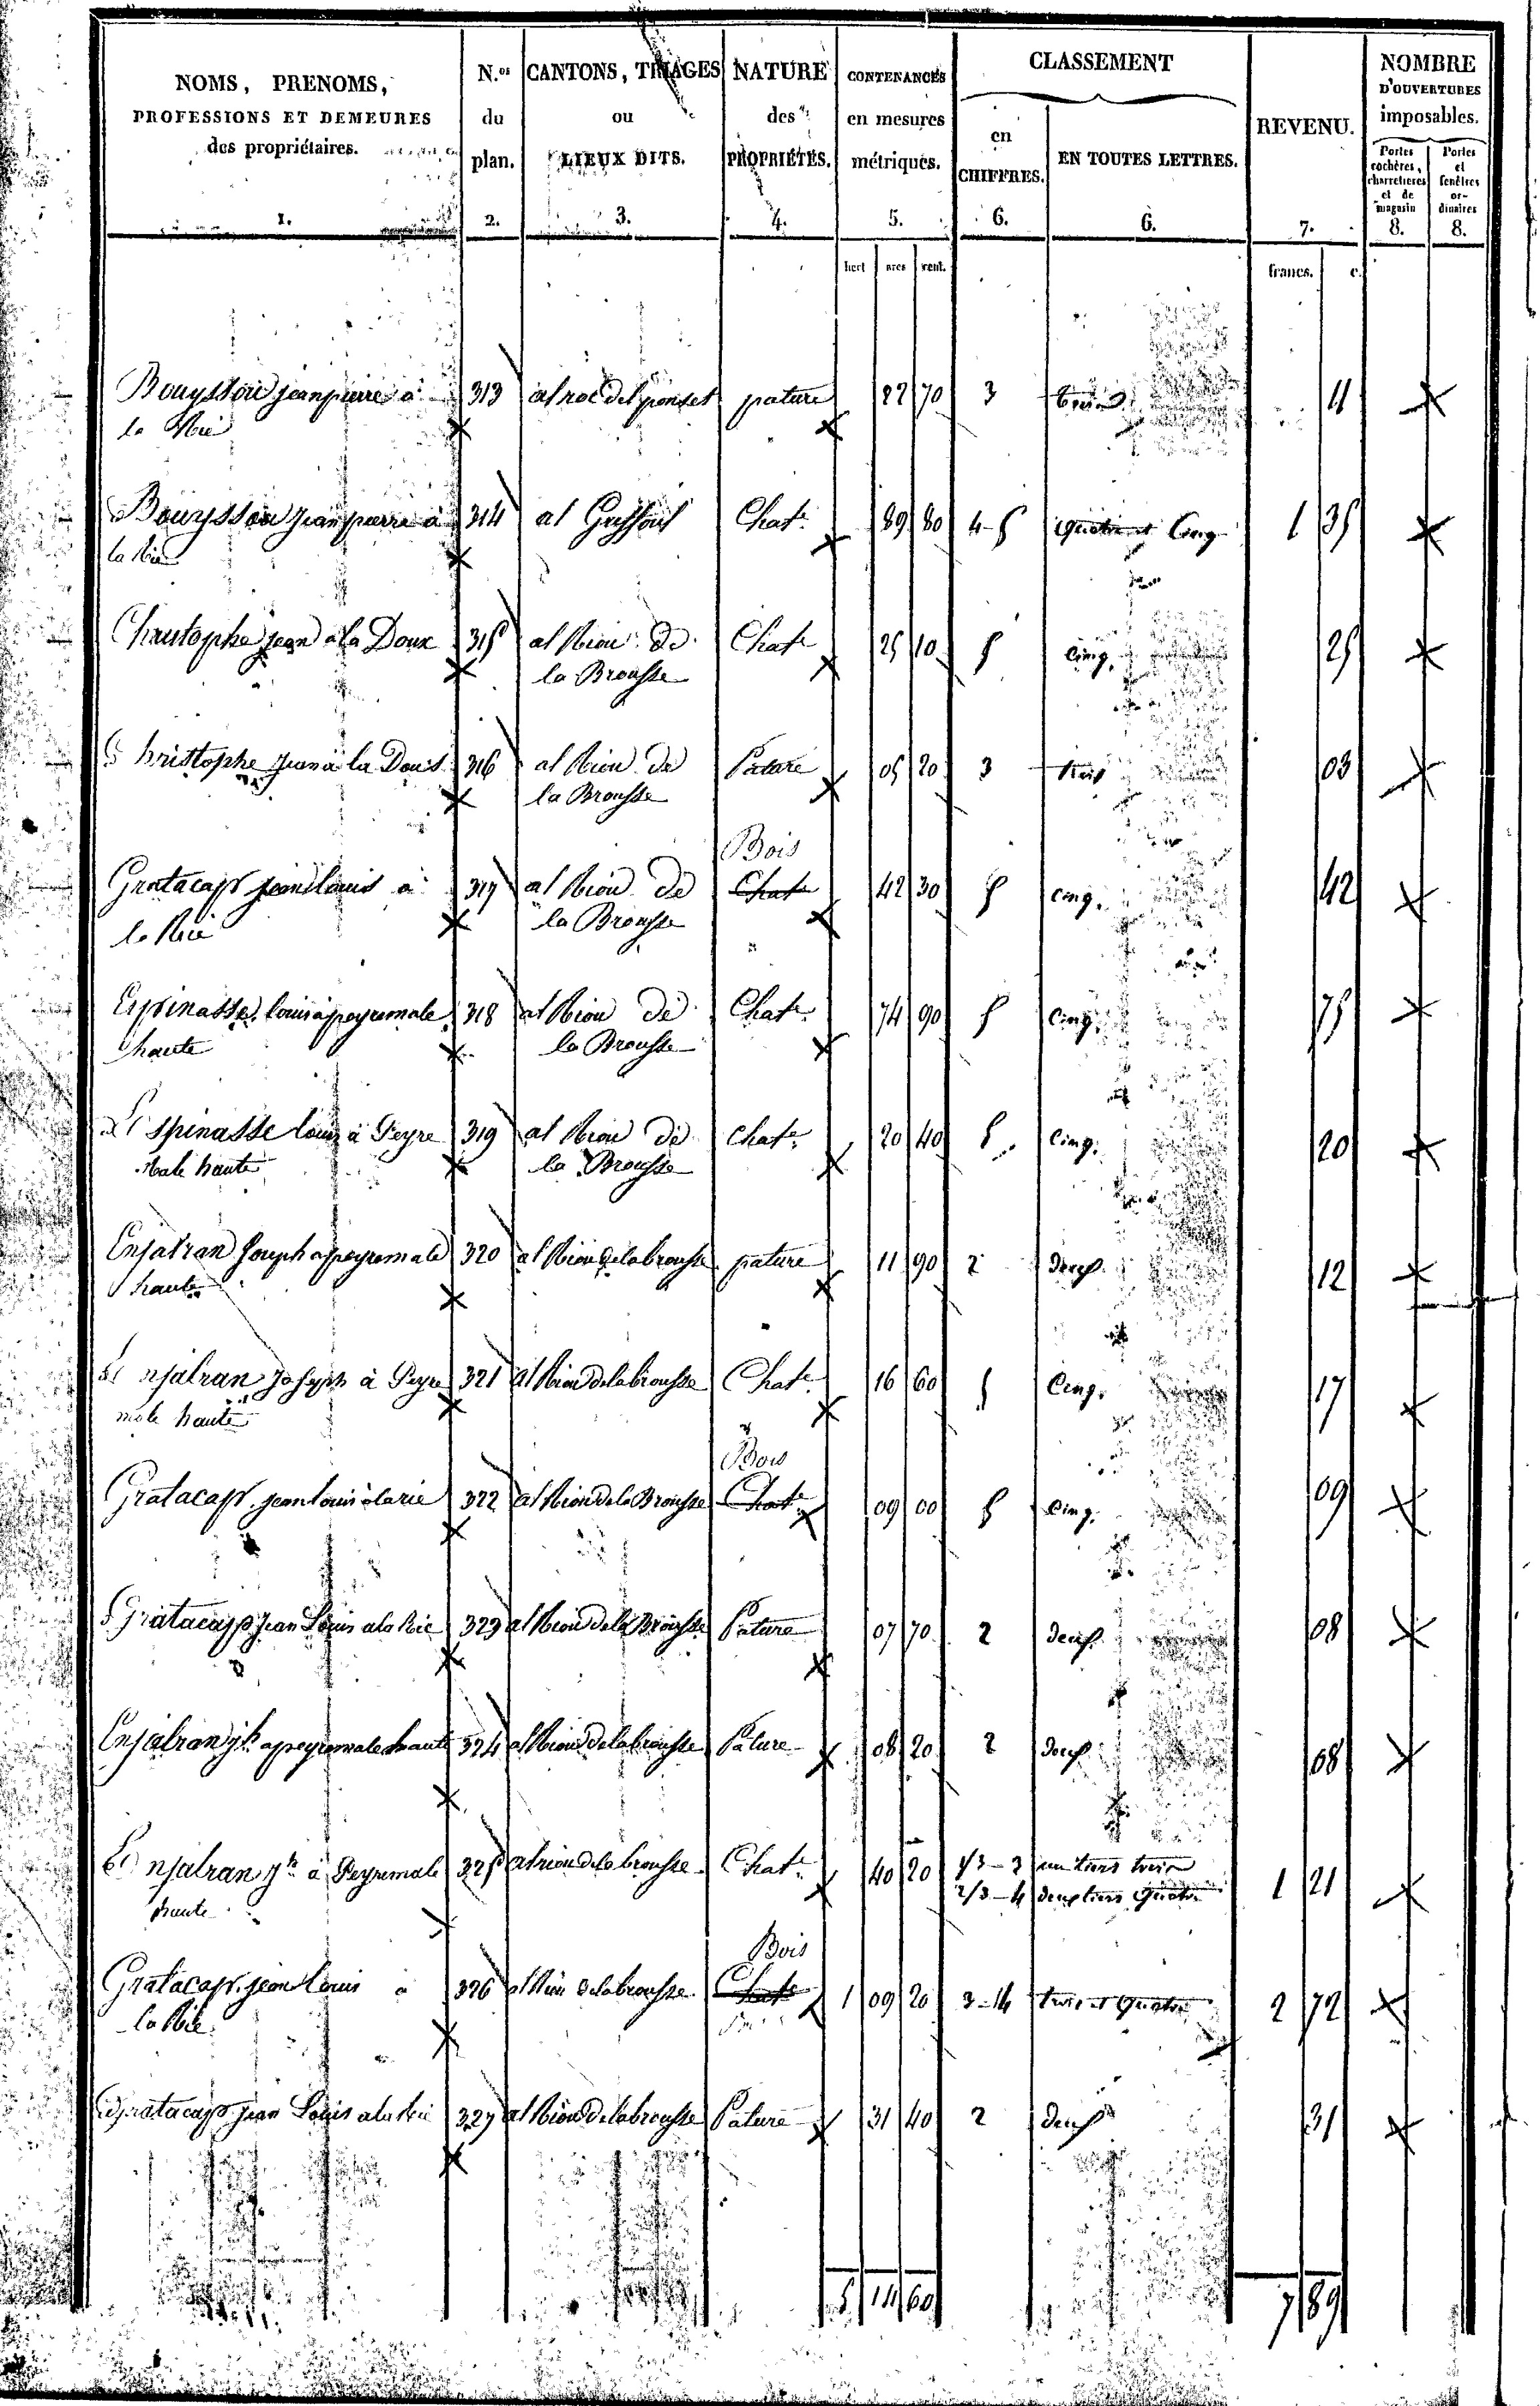 NOMS, PRENOMS, PROFESSIONS ET DEMEURES des propriétaires. 1.
N.os du plan. 2.
CANTONS, TRIAGES ou LIEUX DITS. 3.
NATURE des PROPRIÉTÉS. 4.
CONTENANCES en mesures métriques. 5.
CLASSEMENT
en CHIFFRES. 6.
EN TOUTES LETTRES. 6.
REVENU. 7.
NOMBRE D'OUVERTURES imposables.
Portes cochères, charretieres et de magasin 8.
Portes et fenêtres ordinaires 8.
hect ares cent. francs. c.
Bouyssou jean pierre à 313 al roc del ponset pature 22 70 3 trois 11
la Rié
Bouyssou jean pierre à 314 al Chat.e 89 80 4-5 quatre et Cinq 1 35
la Rié
Christophe jean à la Doux 315 al Riou de Chat.e 25 10 5 cinq. 25
la Brousse
Christophe jean à la Doux 316 al Riou de Pature 05 20 3 trois 03
la Brousse
Bois
Gratacap jean louis à 317 al Riou de Chat.e 42 30 5 cinq. 42
la Rié la Brousse
Espinasse louis à peyremale 318 al Riou de Chat.e 74 90 5 Cinq. 75
haute la Brousse
Espinasse louis à Peyre 319 al Riou de chat.e 20 40 5 Cinq. 20
male haute la Brousse
Enjalran Joseph a peyremale 320 al Riou de la brousse pature 11 90 2 deux 12
haute
Enjalran Joseph à Peyre 321 al Riou de la brousse Chat.e 16 60 5 Cinq. 17
male haute
Bois
Gratacap jean louis à la rié 322 al Riou de la Brousse Chat.e 09 00 5 Cinq. 09
Gratacap jean Louis a la Rié 323 al Riou de la Brousse Pature 07 70 2 deux 08
Enjalran jh a peyremale haute 324 al Riou de la brousse Pature 08 20 2 deux 08
Enjalran jh à Peyremale 325 al riou de la brousse Chat.e 40 20 1/3 - 3 un tiers trois 1 21
haute 2/3 - 4 deux tiers quatre
Bois
Gratacap jean louis à 326 al Riou de la brousse Chat.e 1 09 20 3-4 trois et quatre 2 72
la Rié
Gratacap jean Louis a la Rié 327 al Riou de la brousse Pature 31 40 2 deux 31
5 14 60 7 89